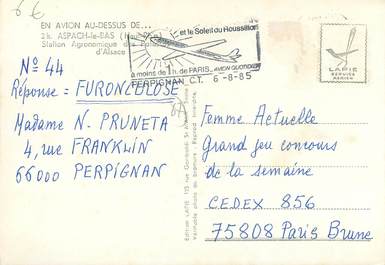 6 €
EN AVION AU-DESSUS DE...
2k. ASPACH-le-BAS (Haut-Rhin)
Station Agronomique des
d'Alsace
et le Soleil du Roussillon
à moins de 1h. de PARIS, AVION QUOTIDIEN
PERPIGNAN C.T. 6-8-85
LAPIE
SERVICE
AERIEN
N° 44
Réponse = FURONCULOSE
Madame N. PRUNETA
4, rue FRANKLIN
66000 PERPIGNAN
Femme Actuelle
Grand jeu concours
de la semaine
CEDEX 856
75808 Paris Brune